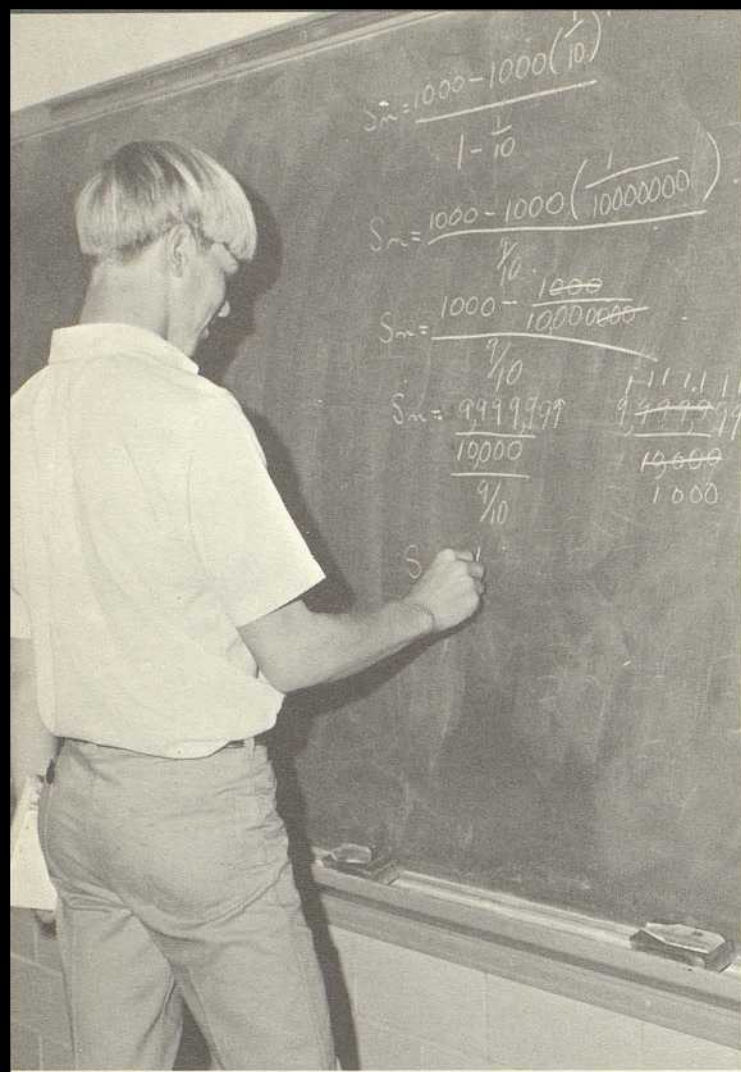 Sn = 1000 - 1000(1/10)
1 - 1/10
Sn = 1000 - 1000(1/10000000)
9/10
Sn = 1000 - 1000/10,000000
9/10
Sn = 9,999,999
10,000
9/10
1 1 1 1 1 1
9,999,999
10,000
1000
S